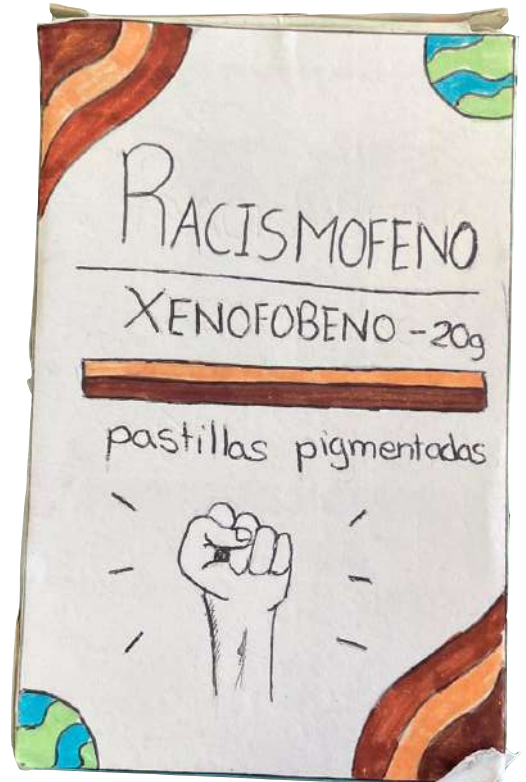 RACISMOFENO
XENOFOBENO - 20g
pastillas pigmentadas